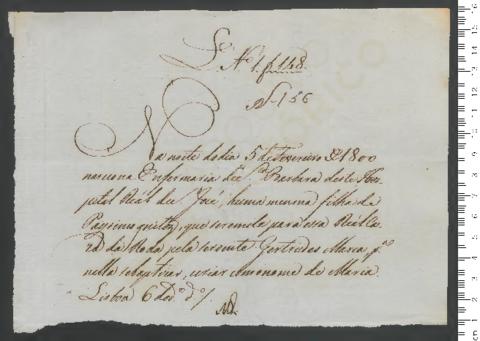 Lº Nº 1. f. 148.
Nº 156
Na noite do dia 5 de Fevereiro de 1800
nasceu na Enfermaria de S. Barbara deste Hos-
pital Real de S. José, huma menina filha de
que se remete para essa Real Ca-
za da Roda pela servente Gertrudes Maria pª
nella se baptizar, e criar com o nome de Maria
Lisboa 6 de dº